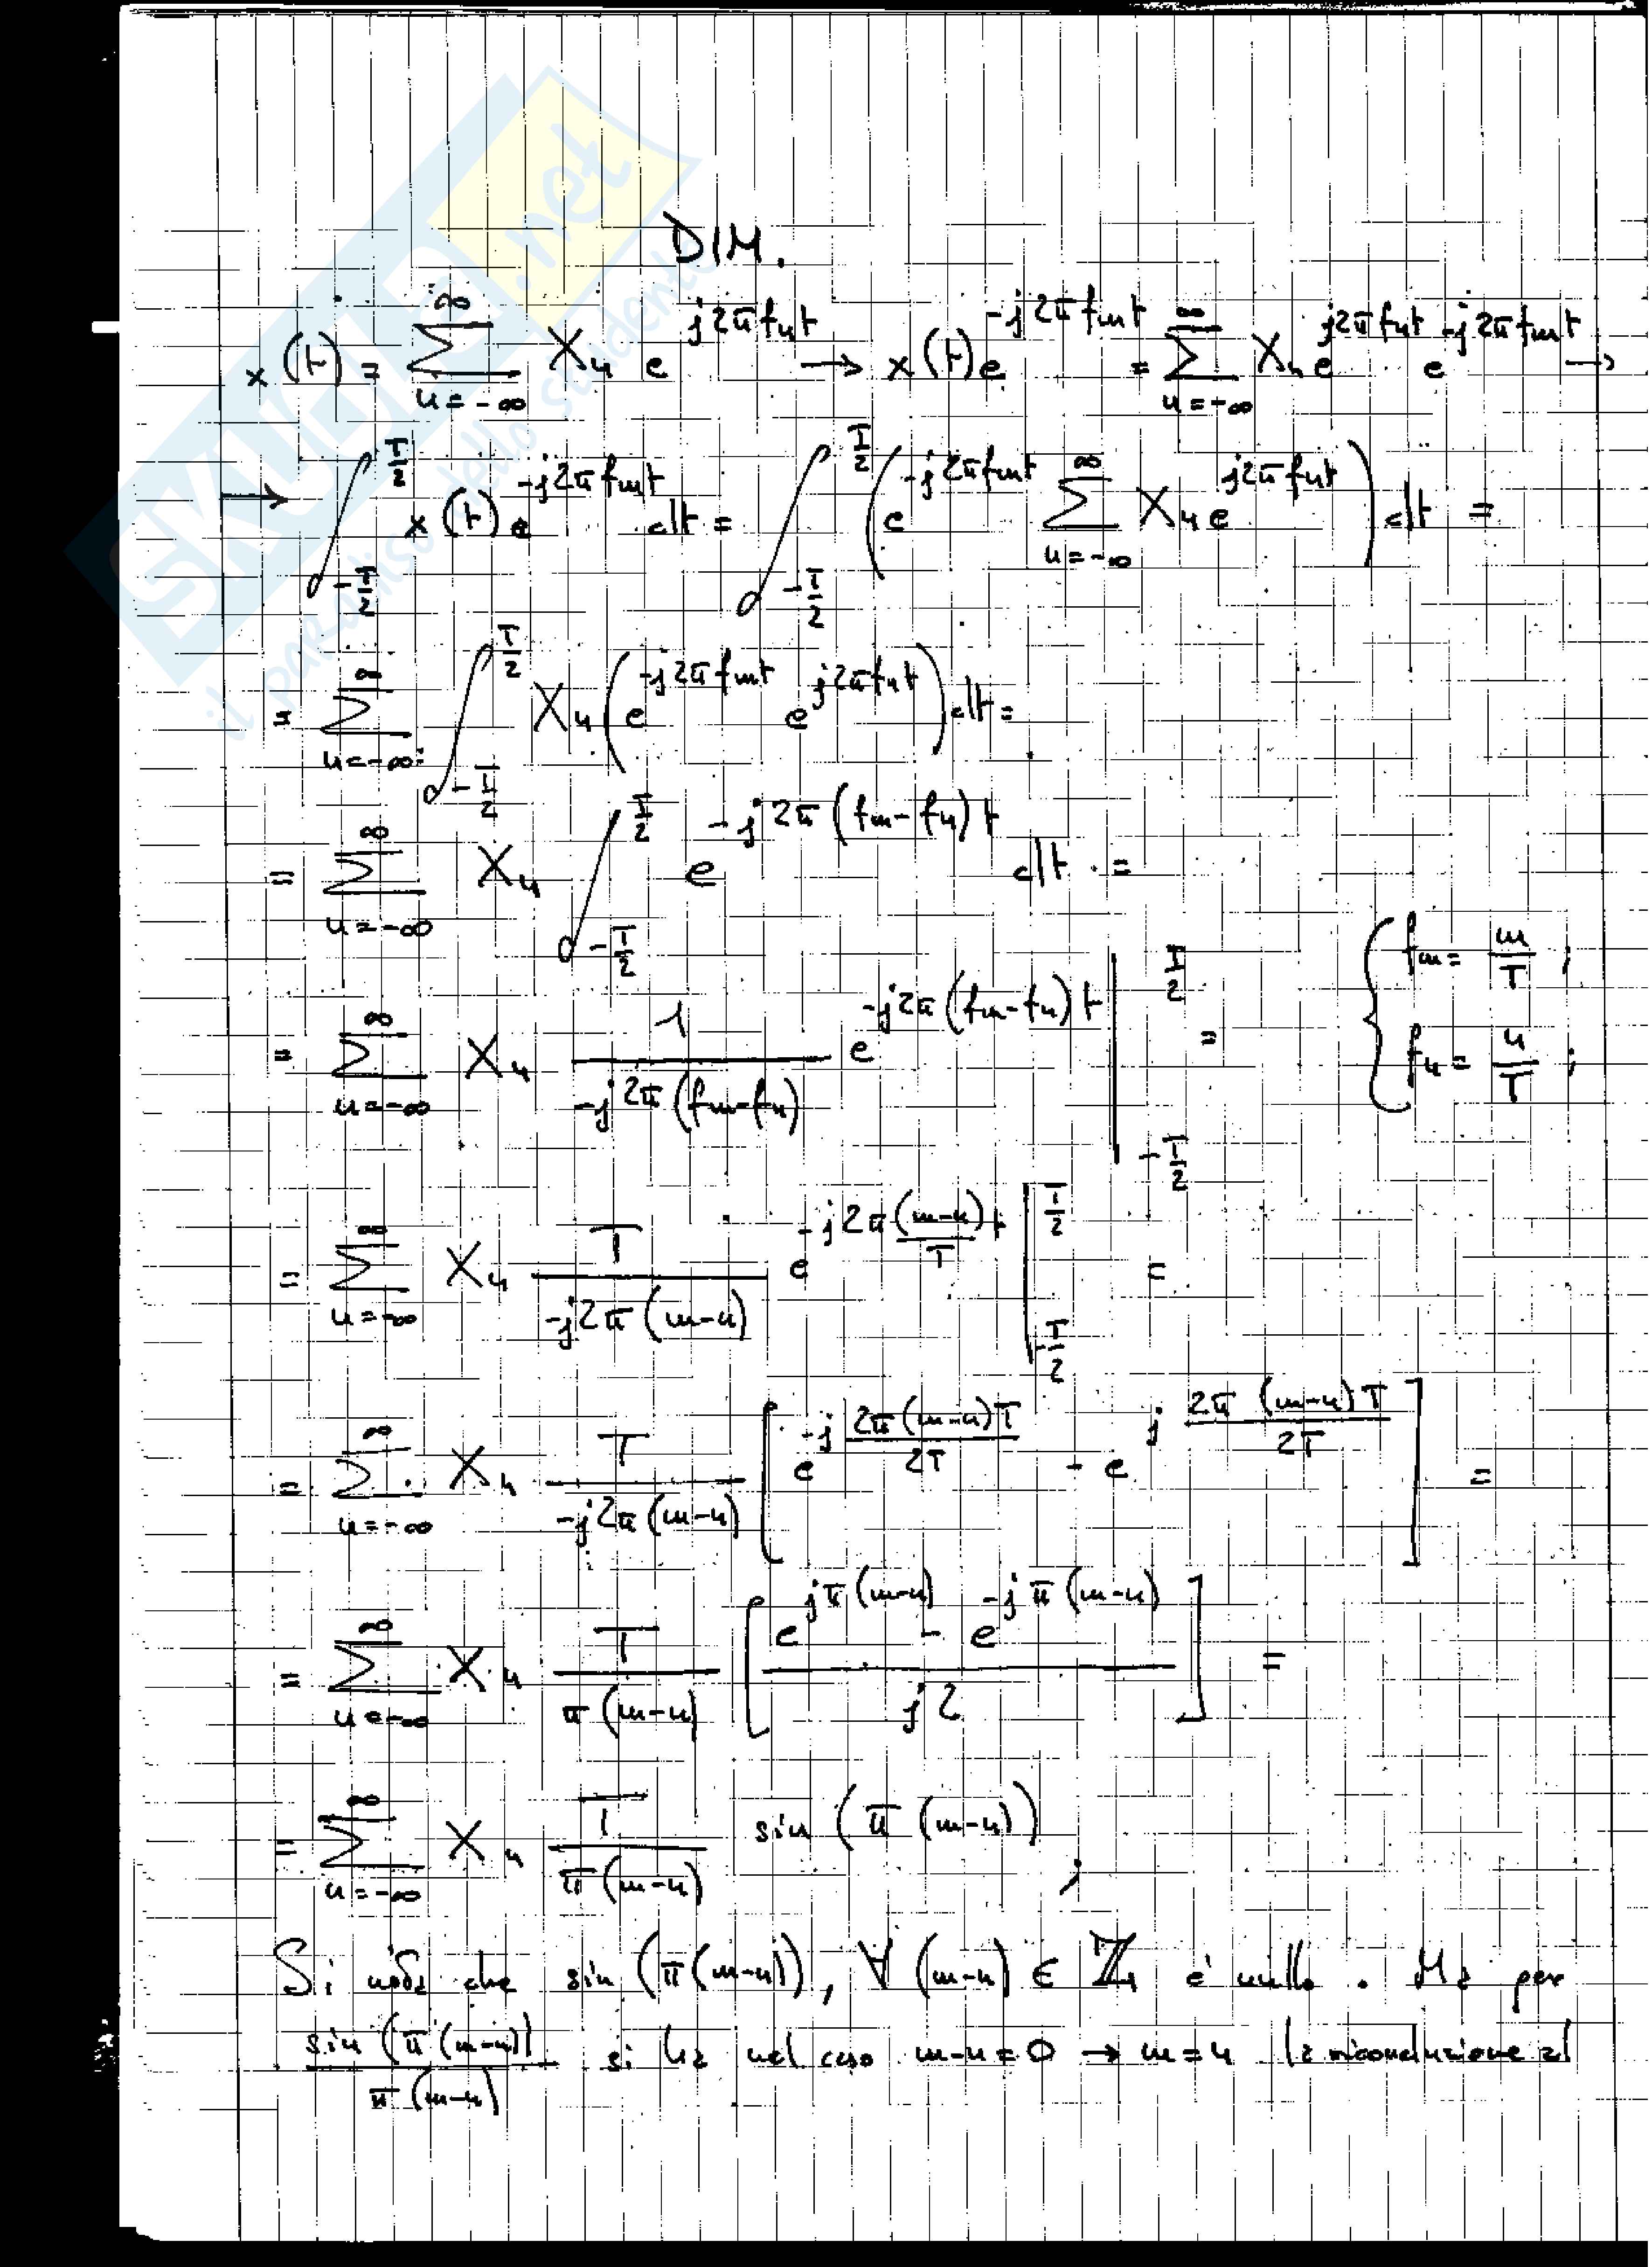 DIM.
x(t) = ∑_{n=-∞}^{∞} X_n e^{j2πf_n t} → x(t) e^{-j2πf_m t} = ∑_{n=-∞}^{∞} X_n e^{j2πf_n t} e^{-j2πf_m t} →
→ ∫_{-T/2}^{T/2} x(t) e^{-j2πf_m t} dt = ∫_{-T/2}^{T/2} (e^{-j2πf_m t} ∑_{n=-∞}^{∞} X_n e^{j2πf_n t}) dt =
= ∑_{n=-∞}^{∞} ∫_{-T/2}^{T/2} X_n (e^{-j2πf_m t} e^{j2πf_n t}) dt =
= ∑_{n=-∞}^{∞} X_n ∫_{-T/2}^{T/2} e^{-j2π(f_m-f_n)t} dt =
= ∑_{n=-∞}^{∞} X_n 1/(-j2π(f_m-f_n)) e^{-j2π(f_m-f_n)t} |_{-T/2}^{T/2} = { f_m = m/T ; f_n = n/T ;
= ∑_{n=-∞}^{∞} X_n T/(-j2π(m-n)) e^{-j2π(m-n)/T t} |_{-T/2}^{T/2} =
= ∑_{n=-∞}^{∞} X_n T/(-j2π(m-n)) [ e^{-j 2π(m-n)T/2T} - e^{j 2π(m-n)T/2T} ] =
= ∑_{n=-∞}^{∞} X_n T/(π(m-n)) [ (e^{jπ(m-n)} - e^{-jπ(m-n)})/(j2) ] =
= ∑_{n=-∞}^{∞} X_n T/(π(m-n)) sin(π(m-n)) ;
Si nota che sin(π(m-n)), ∀(m-n) ∈ ℤ, è nullo. Ma per
sin(π(m-n))/(π(m-n)) si ha nel caso m-n=0 → m=n la riconduzione al
skuola.net
il paradiso dello studente